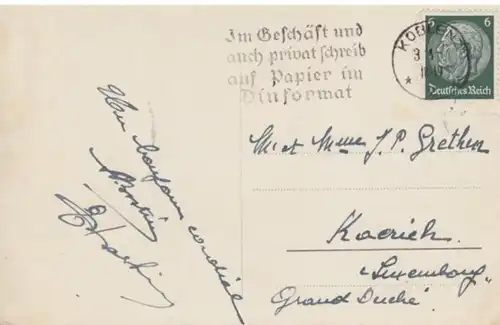 Im Geschäft und
auch privat schreib
auf Papier im
Dinformat
KOBLEN
6 6
Deutsches Reich
Un bonjour cordial
M et Mme J. P. Grethen
Koerich
"Luxembourg"
Grand Duché